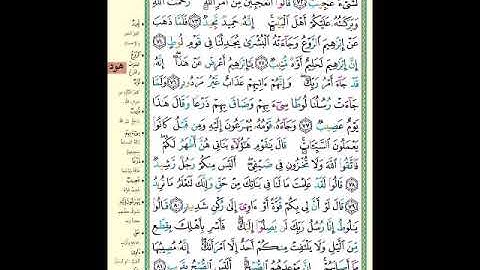 لَشَىْءٌ عَجِيبٌ ﴿٧٢﴾ قَالُوٓا۟ أَتَعْجَبِينَ مِنْ أَمْرِ ٱللَّهِ ۖ رَحْمَتُ ٱللَّهِ
وَبَرَكَٰتُهُۥ عَلَيْكُمْ أَهْلَ ٱلْبَيْتِ ۚ إِنَّهُۥ حَمِيدٌ مَّجِيدٌ ﴿٧٣﴾ فَلَمَّا ذَهَبَ
عَنْ إِبْرَٰهِيمَ ٱلرَّوْعُ وَجَآءَتْهُ ٱلْبُشْرَىٰ يُجَٰدِلُنَا فِى قَوْمِ لُوطٍ ﴿٧٤﴾
إِنَّ إِبْرَٰهِيمَ لَحَلِيمٌ أَوَّٰهٌ مُّنِيبٌ ﴿٧٥﴾ يَٰٓإِبْرَٰهِيمُ أَعْرِضْ عَنْ هَٰذَآ ۖ إِنَّهُۥ
قَدْ جَآءَ أَمْرُ رَبِّكَ ۖ وَإِنَّهُمْ ءَاتِيهِمْ عَذَابٌ غَيْرُ مَرْدُودٍ ﴿٧٦﴾ وَلَمَّا
جَآءَتْ رُسُلُنَا لُوطًا سِىٓءَ بِهِمْ وَضَاقَ بِهِمْ ذَرْعًا وَقَالَ هَٰذَا
يَوْمٌ عَصِيبٌ ﴿٧٧﴾ وَجَآءَهُۥ قَوْمُهُۥ يُهْرَعُونَ إِلَيْهِ وَمِن قَبْلُ كَانُوا۟
يَعْمَلُونَ ٱلسَّيِّـَٔاتِ ۚ قَالَ يَٰقَوْمِ هَٰٓؤُلَآءِ بَنَاتِى هُنَّ أَطْهَرُ لَكُمْ ۖ
فَٱتَّقُوا۟ ٱللَّهَ وَلَا تُخْزُونِ فِى ضَيْفِىٓ ۖ أَلَيْسَ مِنكُمْ رَجُلٌ رَّشِيدٌ ﴿٧٨﴾
قَالُوا۟ لَقَدْ عَلِمْتَ مَا لَنَا فِى بَنَاتِكَ مِنْ حَقٍّ وَإِنَّكَ لَتَعْلَمُ مَا نُرِيدُ
﴿٧٩﴾ قَالَ لَوْ أَنَّ لِى بِكُمْ قُوَّةً أَوْ ءَاوِىٓ إِلَىٰ رُكْنٍ شَدِيدٍ ﴿٨٠﴾ قَالُوا۟
يَٰلُوطُ إِنَّا رُسُلُ رَبِّكَ لَن يَصِلُوٓا۟ إِلَيْكَ ۖ فَأَسْرِ بِأَهْلِكَ بِقِطْعٍ
مِّنَ ٱلَّيْلِ وَلَا يَلْتَفِتْ مِنكُمْ أَحَدٌ إِلَّا ٱمْرَأَتَكَ ۖ إِنَّهُۥ مُصِيبُهَا
مَآ أَصَابَهُمْ ۚ إِنَّ مَوْعِدَهُمُ ٱلصُّبْحُ ۚ أَلَيْسَ ٱلصُّبْحُ بِقَرِيبٍ ﴿٨١﴾
هود